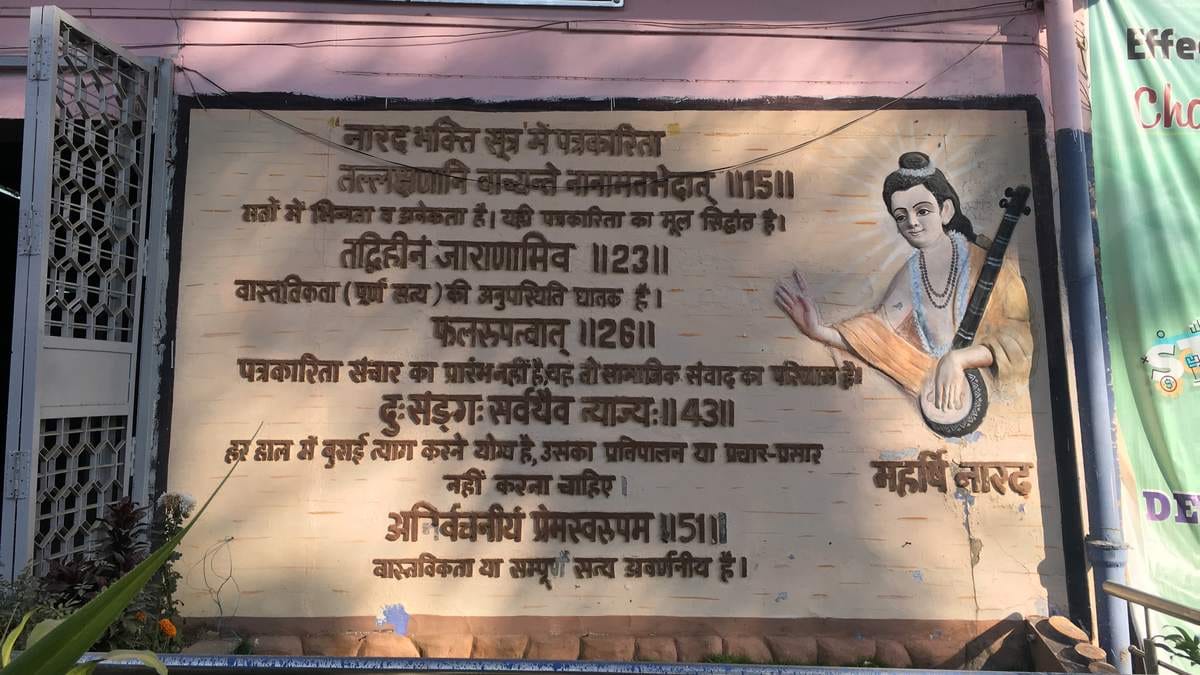 "नारद भक्ति सूत्र' में पत्रकारिता
तल्लक्षणानि वाच्यन्ते नानामतभेदात् ॥15॥
मतों में भिन्नता व अनेकता है। यही पत्रकारिता का मूल सिद्धांत है।
तद्विहीनं जाराणामिव ॥23॥
वास्तविकता (पूर्ण सत्य) की अनुपस्थिति घातक है।
फलरुपत्वात् ॥26॥
पत्रकारिता संचार का प्रारंभ नहीं है, यह तो सामाजिक संवाद का परिणाम है।
दुःसंङ्गः सर्वथैव त्याज्यः॥43॥
हर हाल में बुराई त्याग करने योग्य है, उसका प्रतिपालन या प्रचार-प्रसार
नहीं करना चाहिए।
अनिर्वचनीयं प्रेमस्वरुपम ॥51॥
वास्तविकता या सम्पूर्ण सत्य अवर्णनीय है।
महर्षि नारद
Effe
Cha
DE